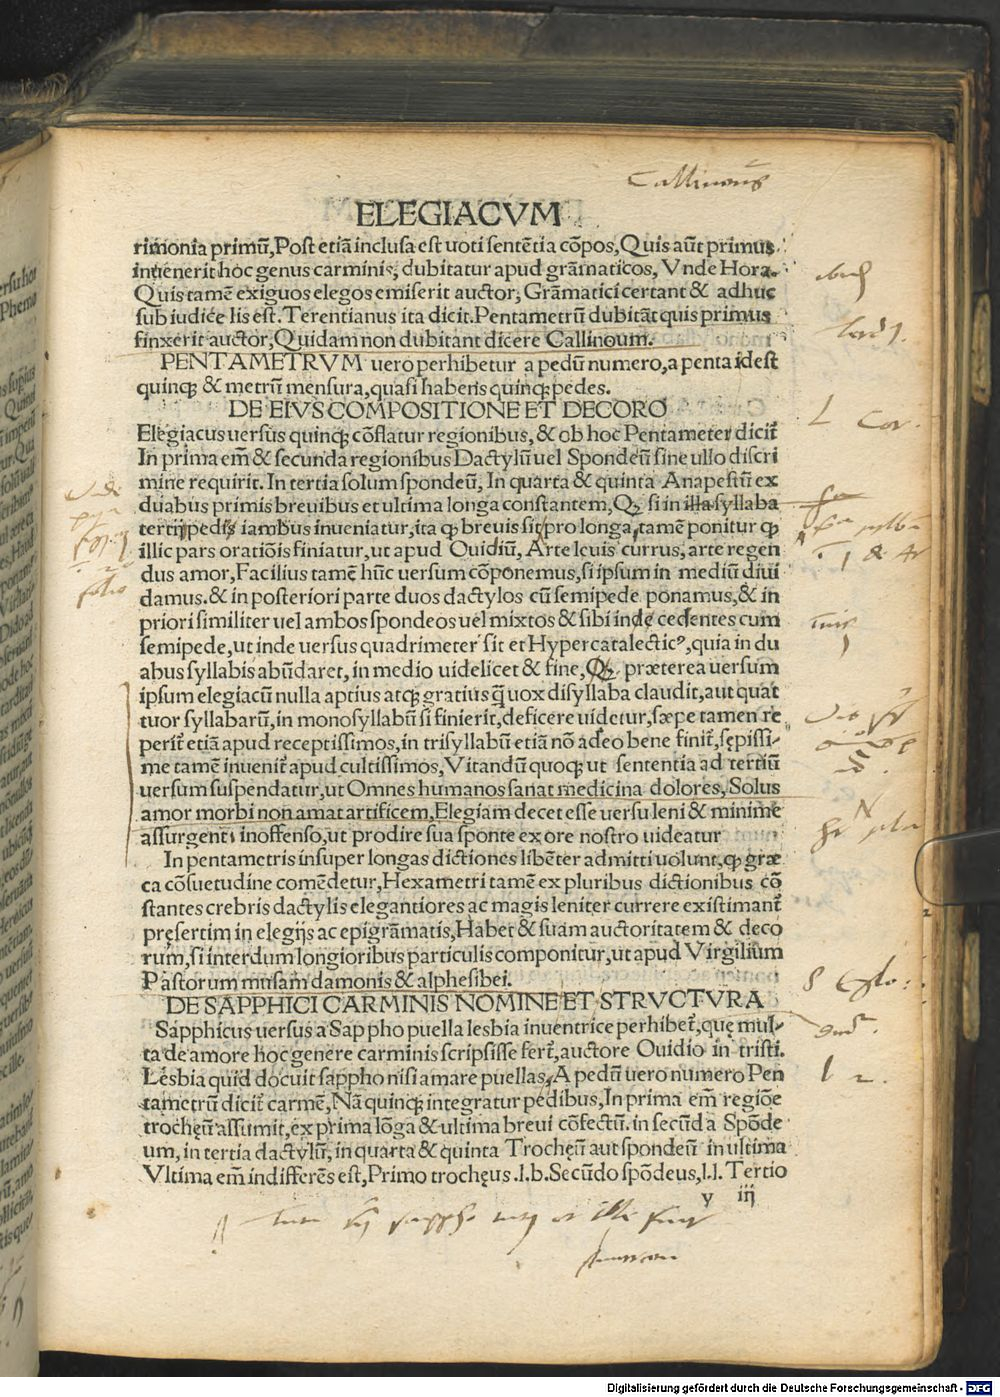 Callinous
ELEGIACVM
rimonia primū, Post etiā inclusa est uoti sentētia cōpos, Quis aūt primus
inuenerit hoc genus carminis, dubitatur apud grāmaticos, Vnde Hora.
Quis tamē exiguos elegos emiserit auctor, Grāmatici certant & adhuc
sub iudice lis est. Terentianus ita dicit. Pentametrū dubitāt quis primus
finxerit auctor, Quidam non dubitant dicere Callinoum.
PENTAMETRVM uero perhibetur a pedū numero, a penta idest
quinqꝫ & metrū mensura, quasi habens quinqꝫ pedes.
DE EIVS COMPOSITIONE ET DECORO
Elegiacus uersus quinqꝫ cōflatur regionibus, & ob hoc Pentameter dicit̃
In prima em̄ & secunda regionibus Dactylū uel Spondeū sine ullo discri
mine requirit. In tertia solum spondeū, In quarta & quinta Anapestū ex
duabus primis breuibus et ultima longa constantem, Qꝫ si in illa syllaba
tertij pedis iambus inueniatur, ita qꝫ breuis sit pro longa, tamē ponitur qꝫ
illic pars oratiōis finiatur, ut apud Ouidiū, Arte leuis currus, arte regen
dus amor, Facilius tamē hūc uersum cōponemus, si ipsum in mediū diui
damus. & in posteriori parte duos dactylos cū semipede ponamus, & in
priori similiter uel ambos spondeos uel mixtos & sibi inde cedentes cum
semipede, ut inde uersus quadrimeter sit et Hypercatalecticꝰ, quia in du
abus syllabis abūdaret, in medio uidelicet & fine, Qꝫ præterea uersum
ipsum elegiacū nulla aptius atqꝫ gratius q̄ uox disyllaba claudit, aut quat
tuor syllabarū, in monosyllabū si finierit, deficere uidetur, sæpe tamen re
perit̃ etiā apud receptissimos, in trisyllabū etiā nō adeo bene finit̃, sępissi-
me tamē inuenit̃ apud cultissimos, Vitandū quoqꝫ ut sententia ad tertiū
uersum suspendatur, ut Omnes humanos sanat medicina dolores, Solus
amor morbi non amat artificem, Elegiam decet esse uersu leni & minime
assurgenti inoffenso, ut prodire sua sponte ex ore nostro uideatur
In pentametris insuper longas dictiones libēter admitti uolunt, qꝫ græ
ca cōsuetudine comēdetur, Hexametri tamē ex pluribus dictionibus cō
stantes crebris dactylis elegantiores ac magis leniter currere existimant̃
pręsertim in elegijs ac epigrāmatis, Habet & suam auctoritatem & deco
rum, si interdum longioribus particulis componitur, ut apud Virgilium
Pastorum musam damonis & alphesibei.
DE SAPPHICI CARMINIS NOMINE ET STRVCTVRA
Sapphicus uersus a Sappho puella lesbia inuentrice perhibet̃, quę mul-
ta de amore hoc genere carminis scripsisse fert̃, auctore Ouidio in tristi.
Lesbia quid docuit sappho nisi amare puellas, A pedū uero numero Pen
tametrū dicit̃ carmē, Nā quinqꝫ integratur pedibus, In prima em̄ regiōe
trochęū assumit, ex prima lōga & ultima breui cōfectū. in secūda Spōde
um, in tertia dactylū, in quarta & quinta Trochęū aut spondeū in ultima
Vltima em̄ indifferēs est, Primo trochęus .l.b. Secūdo spōdeus, l.l. Tertio
y iij
Digitalisierung gefördert durch die Deutsche Forschungsgemeinschaft - DFG